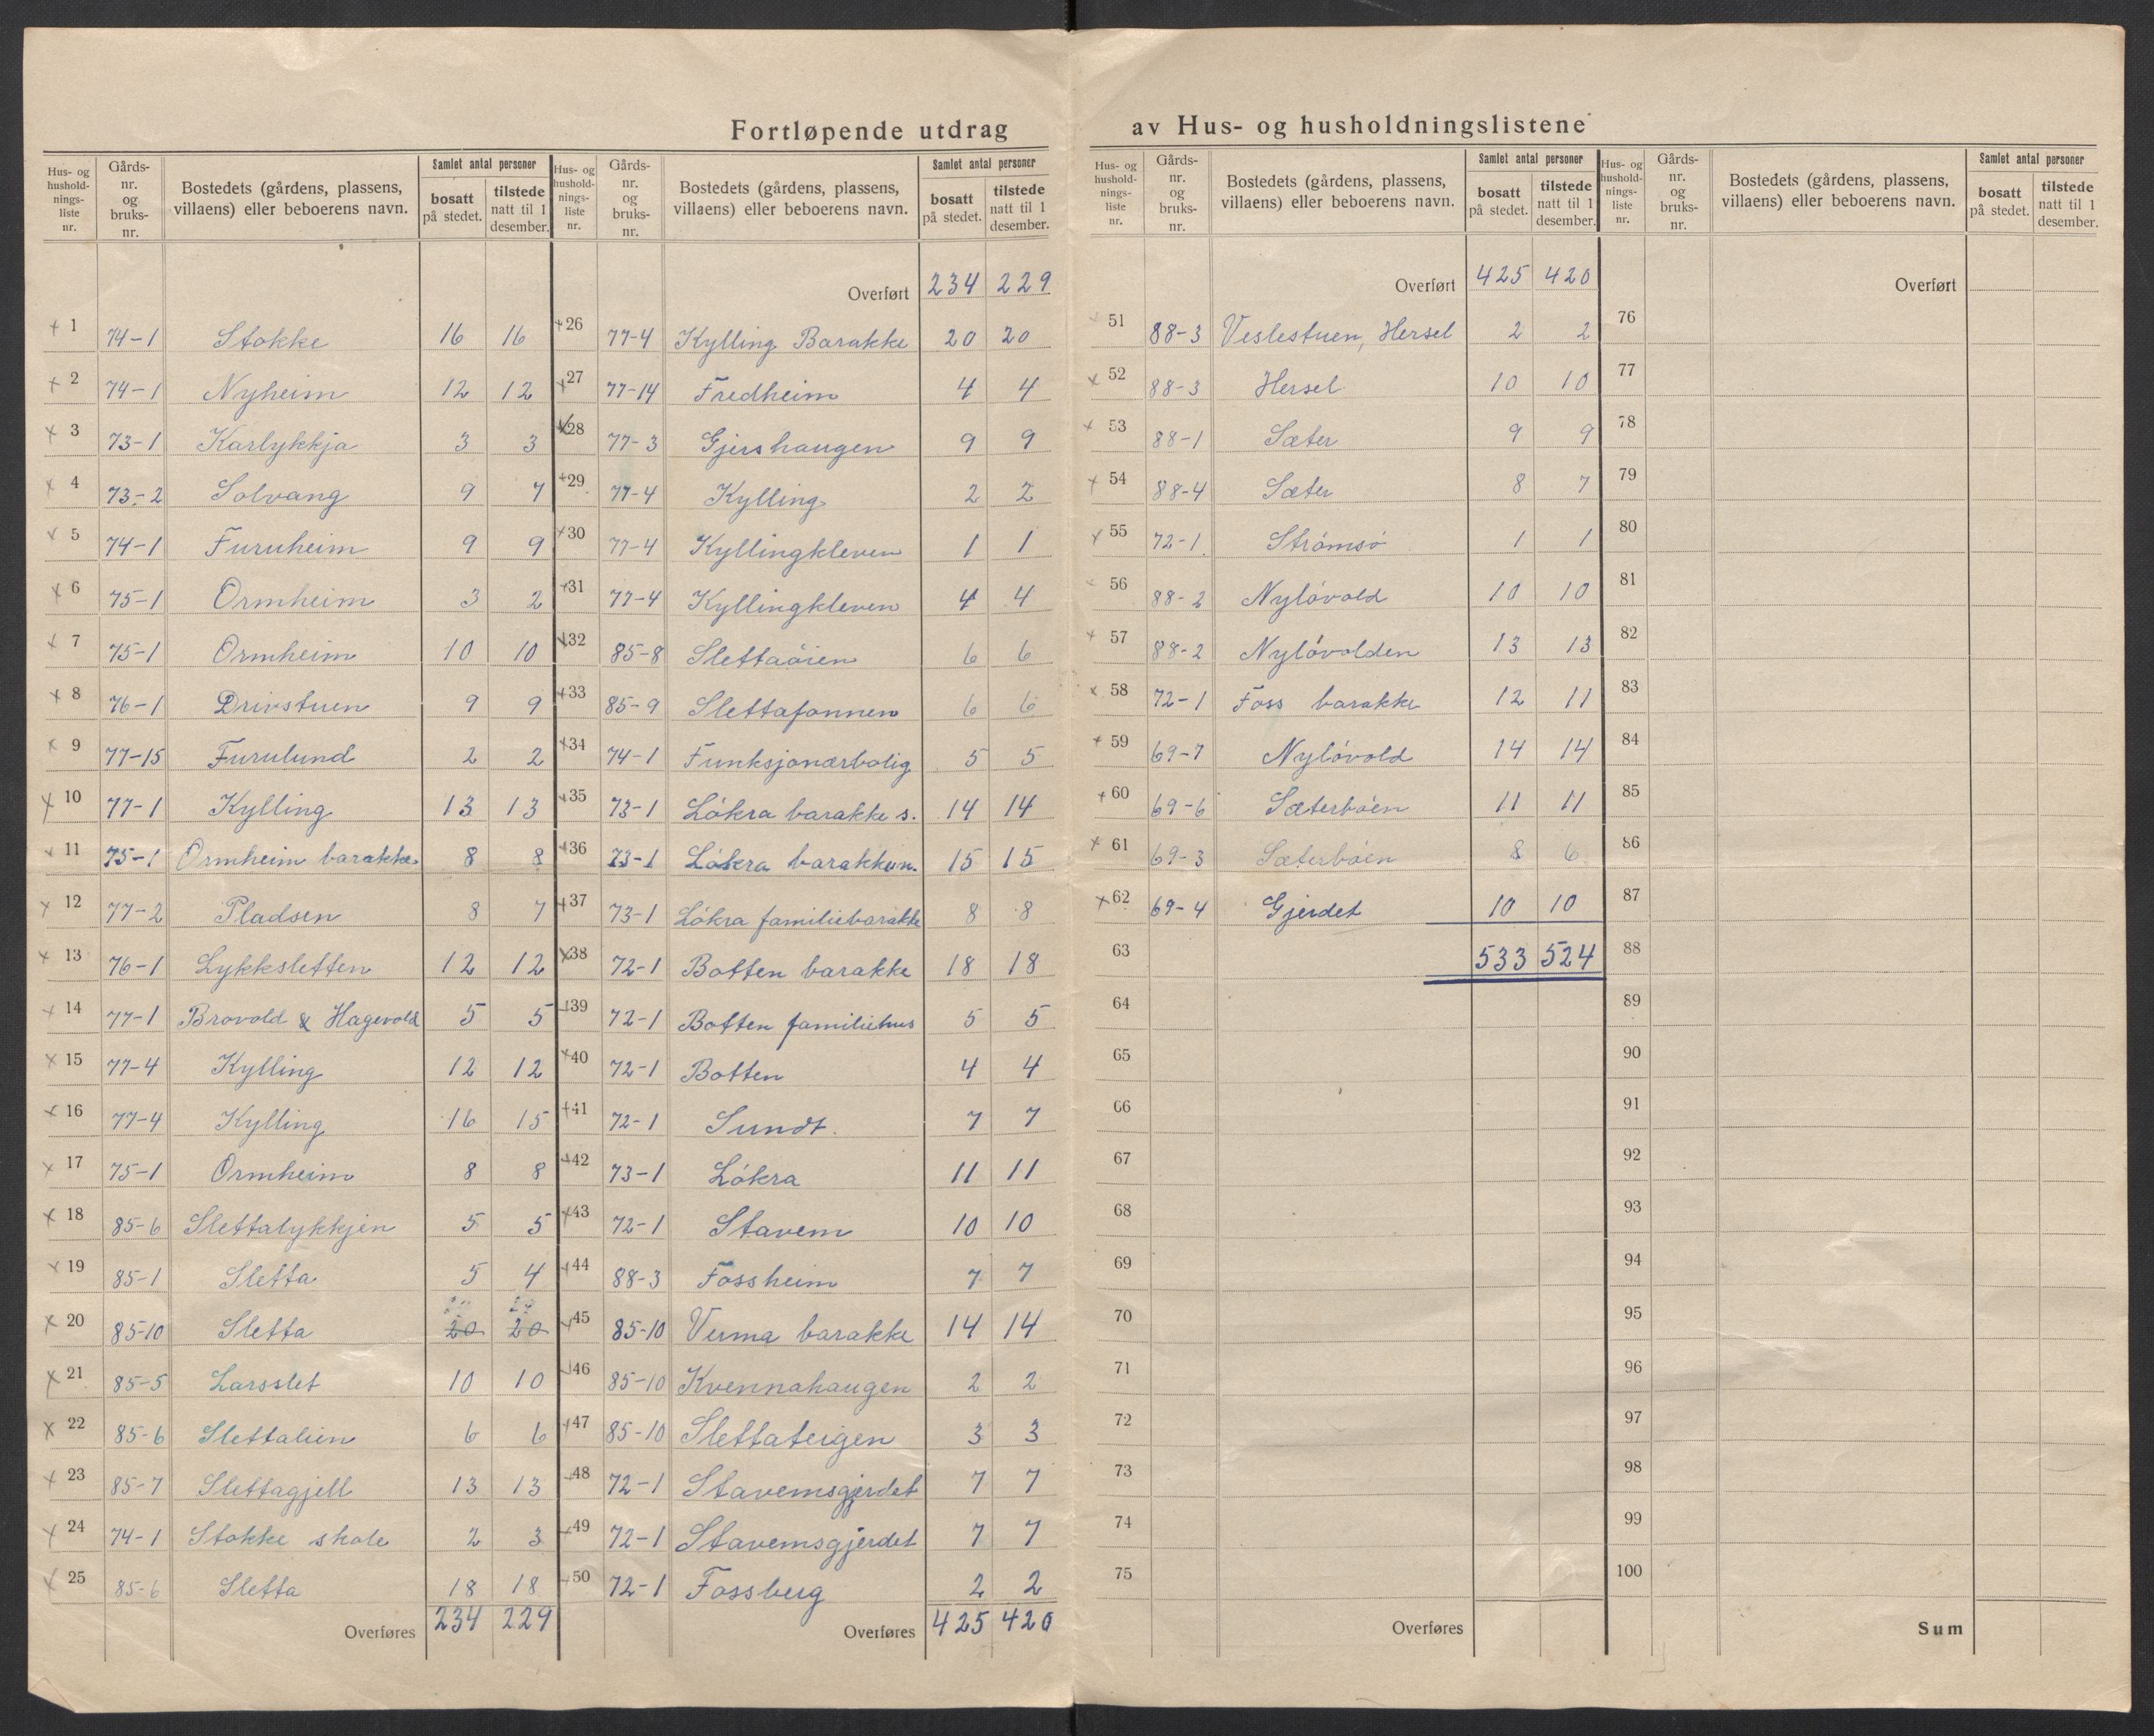 Fortløpende utdrag av Hus- og husholdningslistene
Hus- og hushold-nings-liste nr. | Gårds-nr. og bruks-nr. | Bostedets (gårdens, plassens, villaens) eller beboerens navn. | Samlet antal personer | bosatt på stedet. | tilstede natt til 1 desember.
1 74-1 Stokke 16 16
2 74-1 Nyheim 12 12
3 73-1 Karlykkja 3 3
4 73-2 Solvang 9 7
5 74-1 Furuheim 9 9
6 75-1 Ormheim 3 2
7 75-1 Ormheim 10 10
8 76-1 Drivstuen 9 9
9 77-15 Furulund 2 2
10 77-1 Kylling 13 13
11 75-1 Ormheim barakke 8 8
12 77-2 Pladsen 8 7
13 76-1 Lykksletten 12 12
14 77-1 Brovold & Hagevold 5 5
15 77-4 Kylling 12 12
16 77-4 Kylling 16 15
17 75-1 Ormheim 8 8
18 85-6 Slettalykkjen 5 5
19 85-1 Sletta 5 4
20 85-10 Sletta 20 20
21 85-5 Larsslet 10 10
22 85-6 Slettalien 6 6
23 85-7 Slettagjell 13 13
24 74-1 Stokke skole 2 3
25 85-6 Sletta 18 18
Overføres 234 229
Hus- og hushold-nings-liste nr. | Gårds-nr. og bruks-nr. | Bostedets (gårdens, plassens, villaens) eller beboerens navn. | Samlet antal personer | bosatt på stedet. | tilstede natt til 1 desember.
Overført 234 229
26 77-4 Kylling Barakke 20 20
27 77-14 Fredheim 4 4
28 77-3 Gjershaugen 9 9
29 77-4 Kylling 2 2
30 77-4 Kyllingkleven 1 1
31 77-4 Kyllingkleven 4 4
32 85-8 Slettaöien 6 6
33 85-9 Slettafonnen 6 6
34 74-1 Funksjonærbolig 5 5
35 73-1 Lökra barakke s. 14 14
36 73-1 Lökra barakke n. 15 15
37 73-1 Lökra familiebarakke 8 8
38 72-1 Botten barakke 18 18
39 72-1 Botten familiehus 5 5
40 72-1 Botten 4 4
41 72-1 Sundt. 7 7
42 73-1 Lökra 11 11
43 72-1 Stavem 10 10
44 88-3 Fossheim 7 7
45 85-10 Verma barakke 14 14
46 85-10 Kvennahaugen 2 2
47 85-10 Slettateigen 3 3
48 72-1 Stavemsgjerdet 7 7
49 72-1 Stavemsgjerdet 7 7
50 72-1 Fossberg 2 2
Overføres 425 420
Hus- og hushold-nings-liste nr. | Gårds-nr. og bruks-nr. | Bostedets (gårdens, plassens, villaens) eller beboerens navn. | Samlet antal personer | bosatt på stedet. | tilstede natt til 1 desember.
Overført 425 420
51 88-3 Veslestuen, Hersel 2 2
52 88-3 Hersel 10 10
53 88-1 Sæter 9 9
54 88-4 Sæter 8 7
55 72-1 Strömsö 1 1
56 88-2 Nylövold 10 10
57 88-2 Nylövolden 13 13
58 72-1 Foss barakke 12 11
59 69-7 Nylövold 14 14
60 69-6 Sæterböen 11 11
61 69-3 Sæterböen 8 6
62 69-4 Gjerdet 10 10
63 533 524
64
65
66
67
68
69
70
71
72
73
74
75
Overføres
Hus- og hushold-nings-liste nr. | Gårds-nr. og bruks-nr. | Bostedets (gårdens, plassens, villaens) eller beboerens navn. | Samlet antal personer | bosatt på stedet. | tilstede natt til 1 desember.
Overført
76
77
78
79
80
81
82
83
84
85
86
87
88
89
90
91
92
93
94
95
96
97
98
99
100
Sum